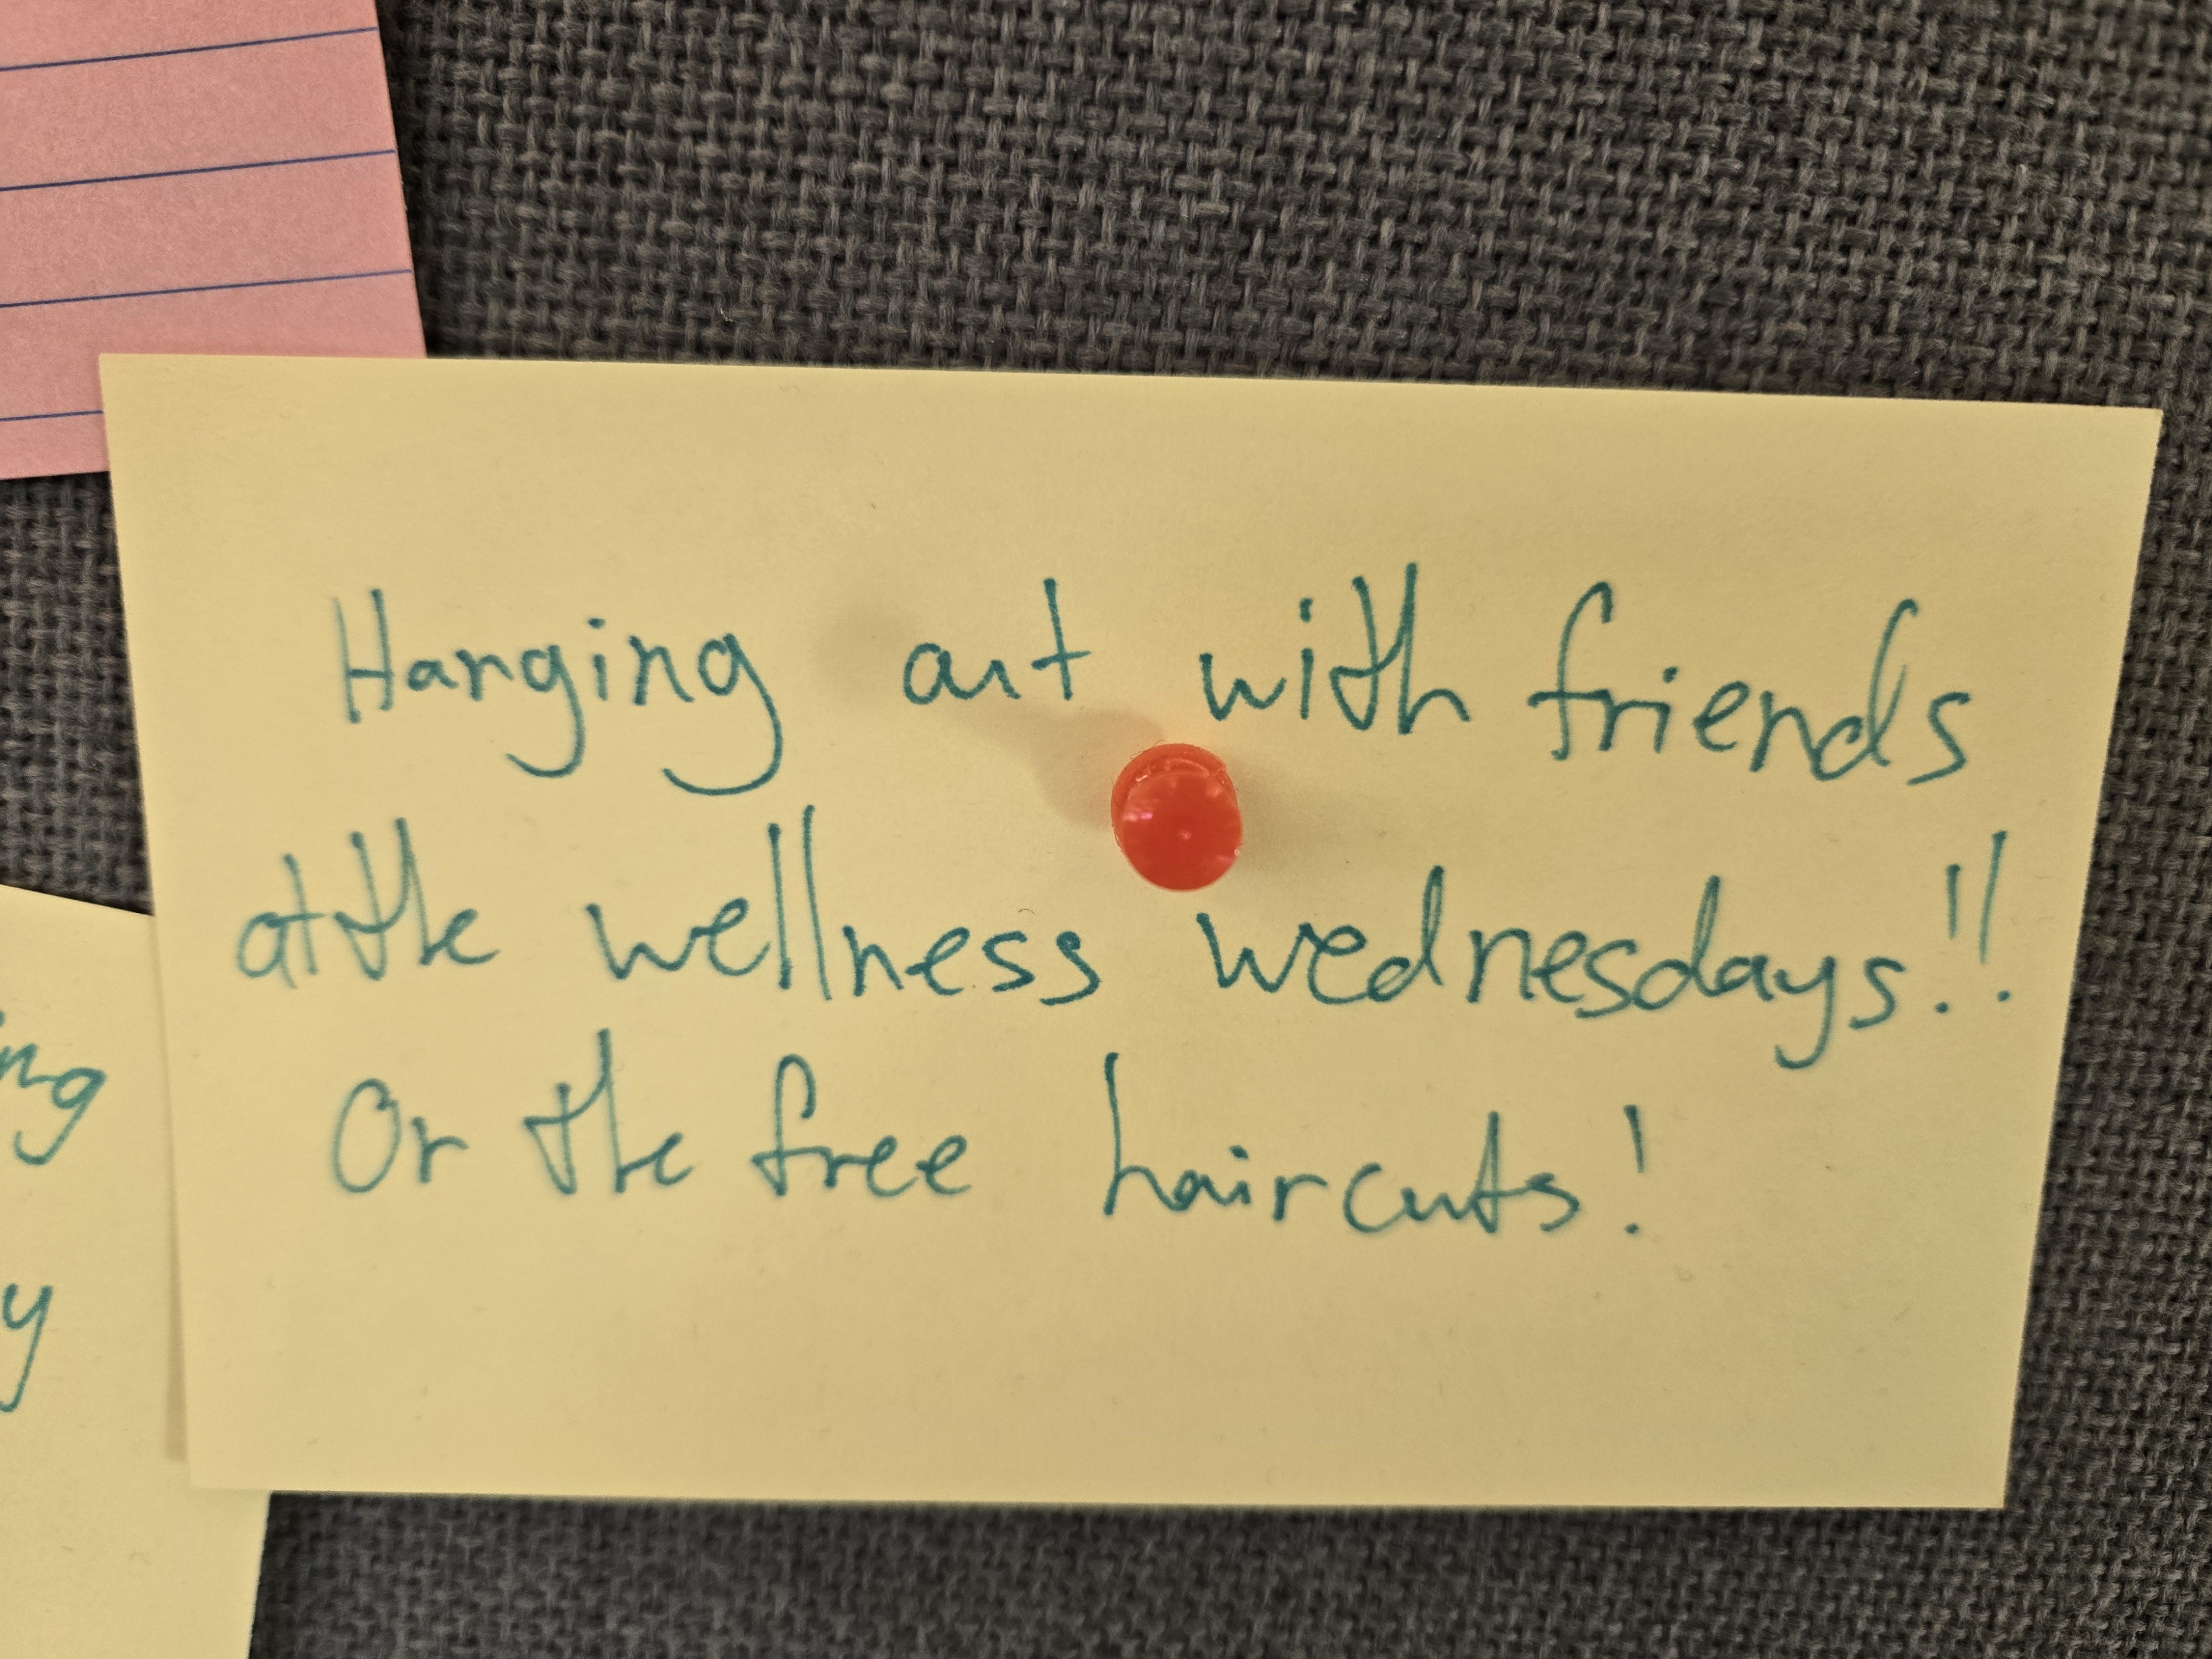 Hanging out with friends
at the wellness wednesdays!!
Or the free haircuts!
ng
y